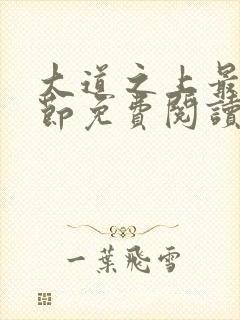 大道之上最
節免費閱讀
一葉飛雪